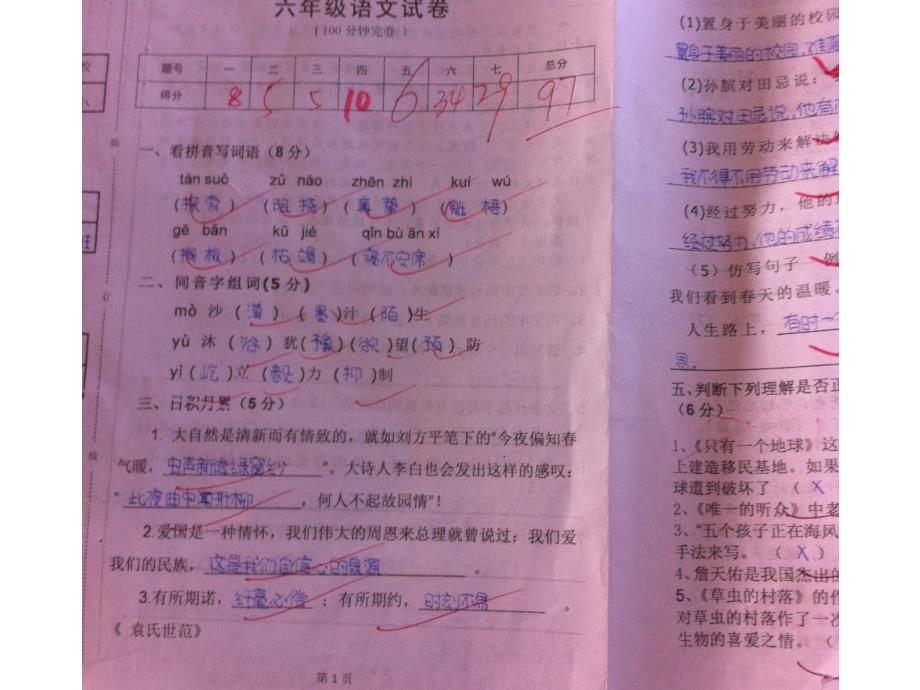 六年级语文试卷
(100分钟完卷)
题号 一 二 三 四 五 六 七 总分
得分 8 5 5 10 6 34 29 97
一、看拼音写词语(8分)
tàn suǒ zǔ náo zhēn zhì kuí wú
(探索) (阻挠) (真挚) (魁梧)
gē bǎn kū jié qǐn bù ān xí
(搁板) (枯竭) (寝不安席)
二、同音字组词(5分)
mò 沙(漠) (墨)汁 (陌)生
yù 沐(浴) 犹(豫)(欲)望(预)防
yì (屹)立 (毅)力 (抑)制
三、日积月累(5分)
1. 大自然是清新而有情致的，就如刘方平笔下的“今夜偏知春
气暖，虫声新透绿窗纱”。大诗人李白也会发出这样的感叹：
“此夜曲中闻折柳，何人不起故园情”！
2.爱国是一种情怀，我们伟大的周恩来总理就曾说过：我们爱
我们的民族，这是我们自信心的泉源。
3.有所期诺，纤毫必偿；有所期约，时刻不易。
《 袁氏世范》
第 1 页
(1)置身于美丽的校园
置身于美丽的校园,
(2)孙膑对田忌说：
孙膑对田忌说,他有
(3)我用劳动来解决
我不得不用劳动来解
(4)经过努力，他的
经过努力,他的成绩
(5) 仿写句子 例
我们看到春天的温暖。
人生路上，有时一
易。
五、判断下列理解是否正
(6分)
1、《只有一个地球》这
上建造移民基地。如果
球遭到破坏了 ( X
2、《唯一的听众》中老
3、“五个孩子正在海风
手法来写。 ( X )
4、詹天佑是我国杰出的
5、《草虫的村落》的作
对草虫的村落作了一次
生物的喜爱之情。
线
订